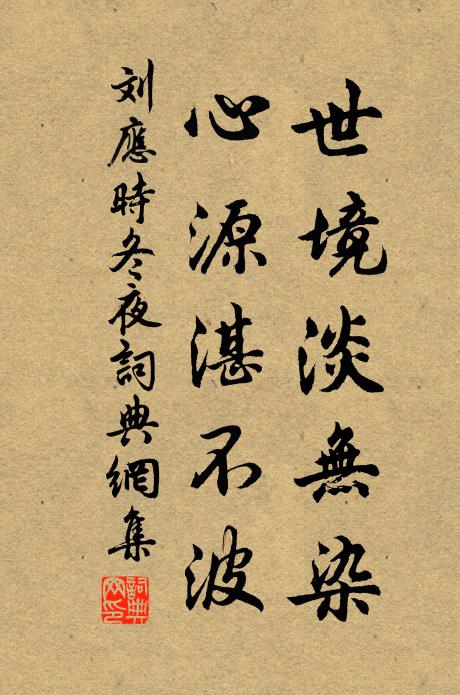 世境淡無染
心源湛不波
刘應時冬夜詞典網集
詞典網印